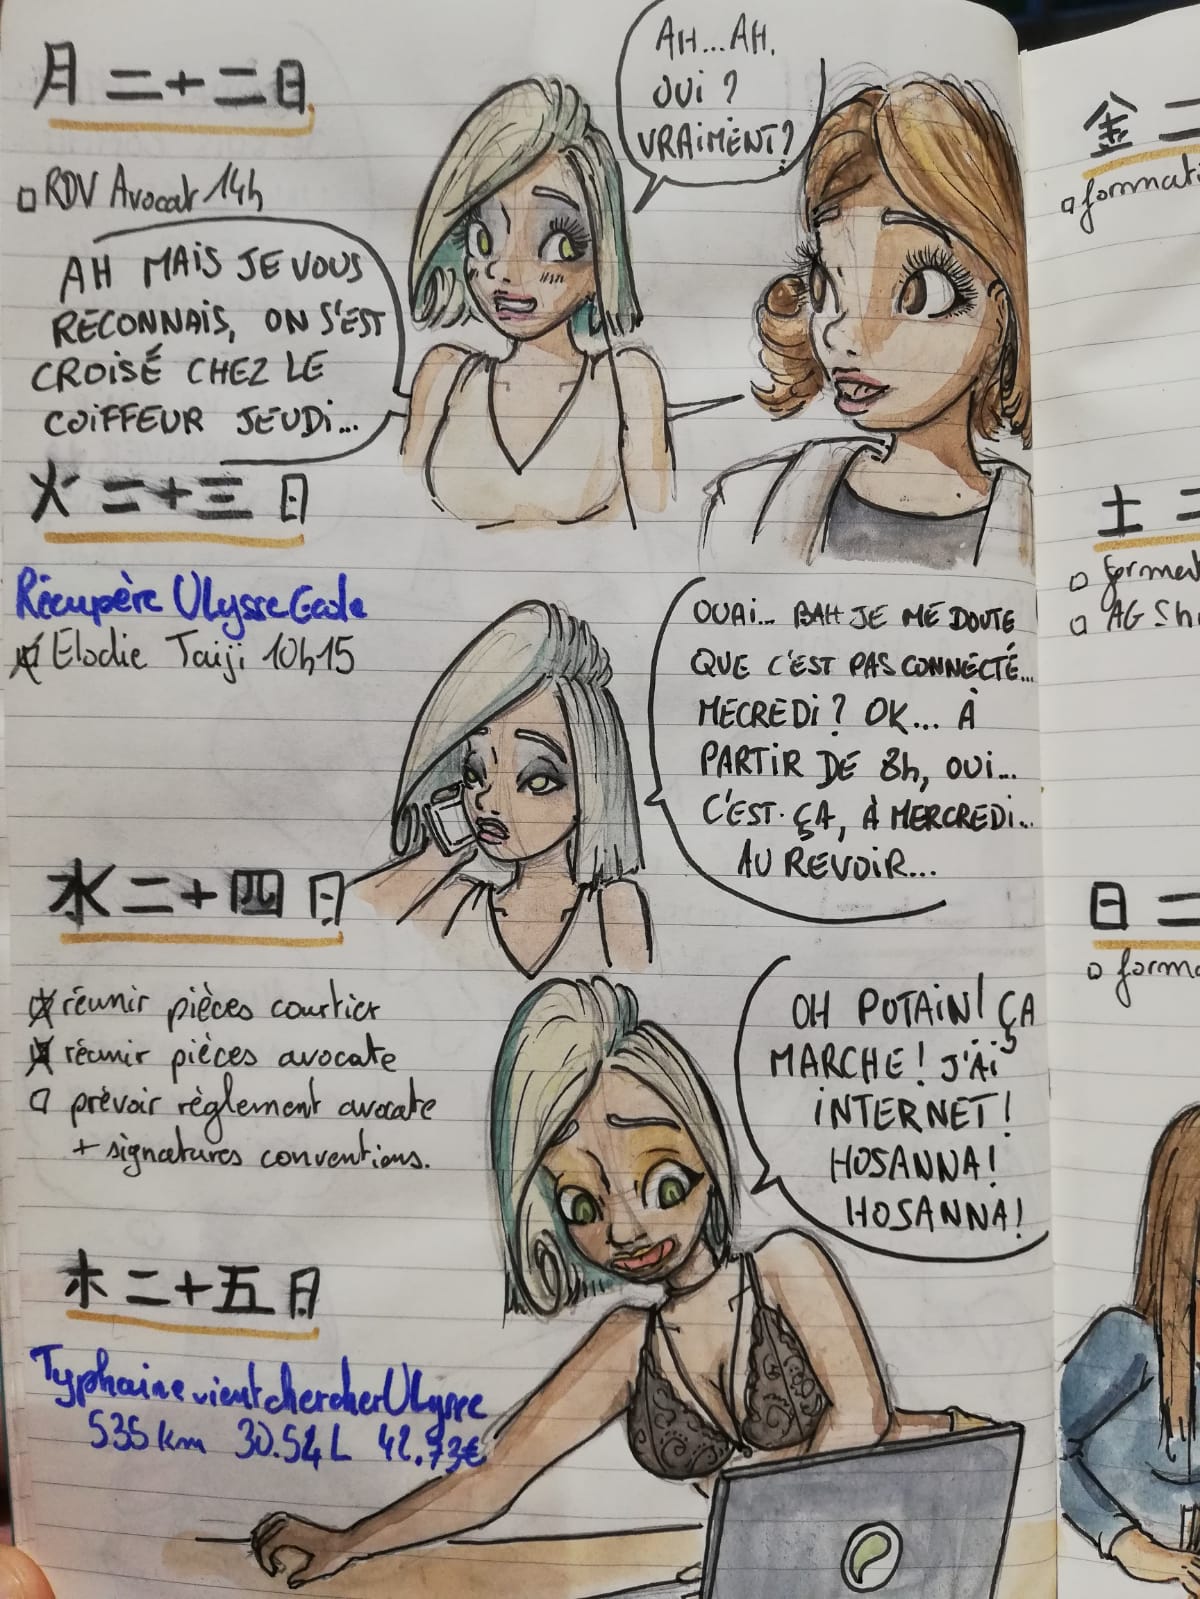 月 二十二日
RDV Avocat 14h
AH...AH.
OUI ?
VRAIMENT?
AH MAIS JE VOUS
RECONNAIS, ON S'EST
CROISÉ CHEZ LE
COIFFEUR JEUDI...
火 二十三日
Récupère Ulysse Ecole
Elodie Taiji 10h15
OUAI... BAH JE ME DOUTE
QUE C'EST PAS CONNECTÉ...
MECREDI? OK... À
PARTIR DE 8h, OUI...
C'EST ÇA, À MERCREDI...
AU REVOIR...
水 二十四日
réunir pièces courtier
réunir pièces avocate
prévoir règlement avocate
+ signatures conventions.
OH PUTAIN! ÇA
MARCHE! J'AI
INTERNET!
HOSANNA!
HOSANNA!
木 二十五日
Typhaine vient chercher Ulysse
535 km 30.54L 42.73€
金 二
土 二
AG
日 二